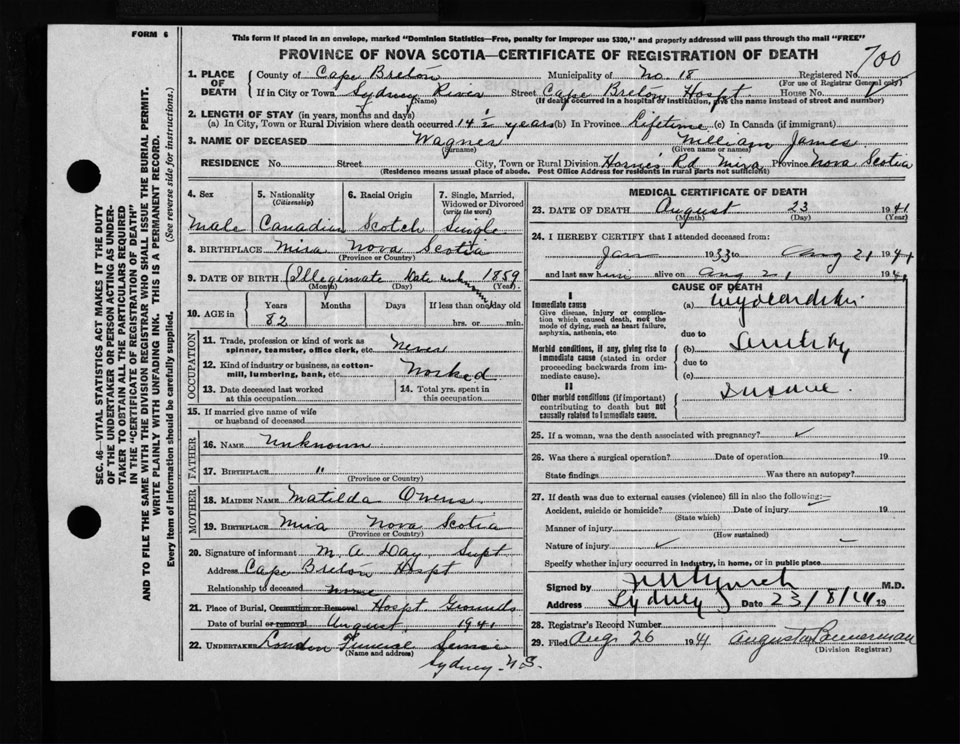 FORM 6
This form if placed in an envelope, marked "Dominion Statistics—Free, penalty for improper use $300," and properly addressed will pass through the mail "FREE"
PROVINCE OF NOVA SCOTIA—CERTIFICATE OF REGISTRATION OF DEATH
700
1. PLACE OF DEATH County of Cape Breton Municipality of No. 18 Registered No.
(For use of Registrar General only)
If in City or Town Sydney River Street Cape Breton Hospt House No.
(Name) (If death occurred in a hospital or institution, give the name instead of street and number)
2. LENGTH OF STAY (in years, months and days)
(a) In City, Town or Rural Division where death occurred 14 1/2 years (b) In Province Lifetime (c) In Canada (if immigrant)
3. NAME OF DECEASED Wagner William James
(Surname) (Given name or names)
RESIDENCE No. Street City, Town or Rural Division Rd Mira Province Nova Scotia
(Residence means usual place of abode. Post Office Address for residents in rural parts not sufficient)
4. Sex 5. Nationality 6. Racial Origin 7. Single, Married,
(Citizenship) Widowed or Divorced
(write the word)
Male Canadian Scotch Single
8. BIRTHPLACE Mira Nova Scotia
(Province or Country)
9. DATE OF BIRTH (Illegimate Date unknown 1859
(Month) (Day) (Year)
10. AGE in Years Months Days If less than one day old
82 hrs. or min.
OCCUPATION
11. Trade, profession or kind of work as
spinner, teamster, office clerk, etc. Never
12. Kind of industry or business, as cotton-
mill, lumbering, bank, etc. Worked
13. Date deceased last worked 14. Total yrs. spent in
at this occupation this occupation
15. If married give name of wife
or husband of deceased
FATHER
16. NAME Unknown
17. BIRTHPLACE "
(Province or Country)
MOTHER
18. MAIDEN NAME Matilda Owens
19. BIRTHPLACE Mira Nova Scotia
(Province or Country)
20. Signature of informant M A Day Supt
Address Cape Breton Hospt
Relationship to deceased none
21. Place of Burial, Cremation or Removal Hospt Grounds
Date of burial or removal August 1941
22. UNDERTAKER London Funeral Service
(Name and address)
Sydney N.S.
MEDICAL CERTIFICATE OF DEATH
23. DATE OF DEATH August 23 1941
(Month) (Day) (Year)
24. I HEREBY CERTIFY that I attended deceased from:
Jan 1933 to Aug 21 1941
and last saw him alive on Aug 21 1941
CAUSE OF DEATH
I
Immediate cause (a) Myocarditis
Give disease, injury or complica-
tion which caused death, not the
mode of dying, such as heart failure,
asphyxia, asthenia, etc due to
Morbid conditions, if any, giving rise to (b) Senility
immediate cause (stated in order due to
proceeding backwards from im-
mediate cause). (c)
II
Other morbid conditions (if important)
contributing to death but not
causally related to immediate cause.
Insane
25. If a woman, was the death associated with pregnancy?
26. Was there a surgical operation? Date of operation 19
State findings Was there an autopsy?
27. If death was due to external causes (violence) fill in also the following:
Accident, suicide or homicide? Date of injury 19
(State which)
Manner of injury
(How sustained)
Nature of injury
Specify whether injury occurred in industry, in home, or in public place
Signed by M.D.
Address Sydney Date 23/8/41 19
28. Registrar's Record Number
29. Filed Aug 26 1941 Augusta Bannerman
(Division Registrar)
SEC. 46—VITAL STATISTICS ACT MAKES IT THE DUTY
OF THE UNDERTAKER OR PERSON ACTING AS UNDER-
TAKER TO OBTAIN ALL THE PARTICULARS REQUIRED
IN THE "CERTIFICATE OF REGISTRATION OF DEATH"
AND TO FILE THE SAME WITH THE DIVISION REGISTRAR WHO SHALL ISSUE THE BURIAL PERMIT.
WRITE PLAINLY WITH UNFADING INK. THIS IS A PERMANENT RECORD.
Every item of information should be carefully supplied. (See reverse side for instructions.)